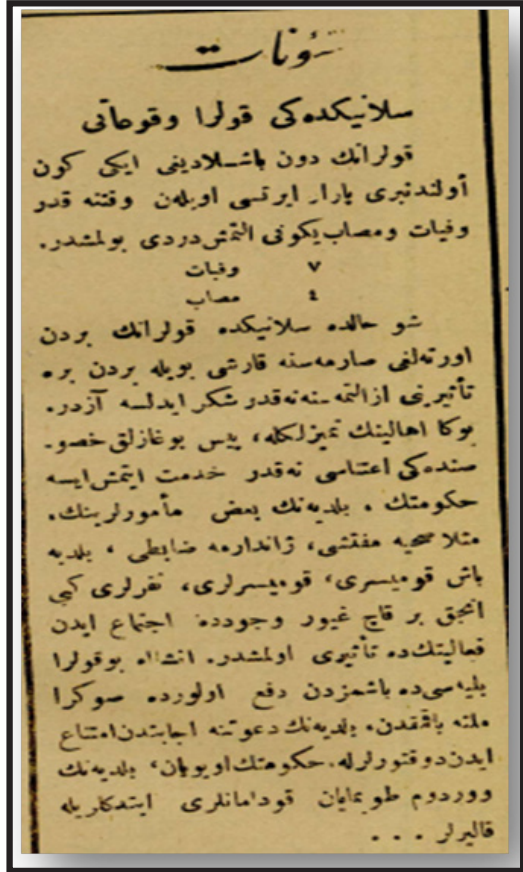 شئونات
سلانیکده‌کی قولرا وقوعاتی
قولرانك دون باشلادینی ایکی کون
أولندنبری یارار ایرتسی اویله‌ن وقتنه قدر
وفیات ومصاب یکونی التمش دردی بولمشدر.
۷ وفیات
٤ مصاب
شو حالده سلانیکده قولرانك بردن
اورته‌لغی صارمه‌سنه قارشی بویله بردن بره
تأثیرینی ازالتمه‌سنه نه‌قدر شکر ایدلسه آزدر.
بوکا اهالینك تمیزلکله، پیس بوغازلق خصو-
صنده‌کی اعتناسی نه‌قدر خدمت ایتمش ایسه
حکومتك ، بلدیه‌نك بعض مأمورلرینك،
مثلا صحیه مفتشی، ژاندارمه ضابطی ، بلدیه
باش قومیسری، قومیسرلری، نفرلری کبی
انجق بر قاچ غیور وجودده اجتماع ایدن
فعالیتك‌ده تأثیری اولمشدر. انشاالله بوقولرا
بلیه‌سی‌ده باشمزدن دفع اولورده صوکرا
ملته باقمقدن، بلدیه‌نك دعوتنه اجابتدن امتناع
ایدن دوقتورلرله، حکومتك اویویان، بلدیه‌نك
ووردوم طویمایان قودامانلری ایتدکاریله
قالیرلر . . .